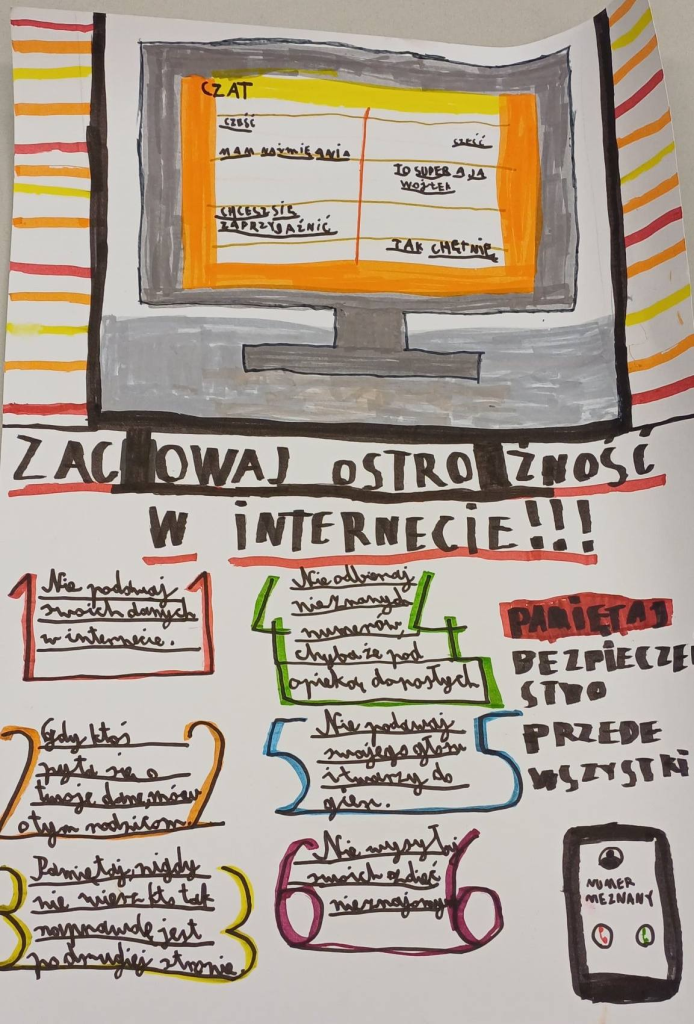 CZAT
CZEŚĆ
CZEŚĆ
MAM NA IMIĘ ANIA
TO SUPER A JA
WOJTEK
CHCESZ SIĘ
ZAPRZYJAŹNIĆ
TAK CHĘTNIE
ZACHOWAJ OSTROŻNOŚĆ
W INTERNECIE!!!
Nie podawaj
swoich danych
w internecie.
Gdy ktoś
pyta się o
twoje dane, mów
o tym rodzicom.
Pamiętaj, nigdy
nie wiesz kto tak
naprawdę jest
po drugiej stronie.
Nie odbieraj
nieznanych
numerów,
chyba że pod
opieką dorosłych
Nie podawaj
swojego głosu
i twarzy do
gier.
Nie wysyłaj
swoich zdjęć
nieznajomym
PAMIĘTAJ
BEZPIECZE
STWO
PRZEDE
WSZYSTKI
NUMER
NIEZNANY